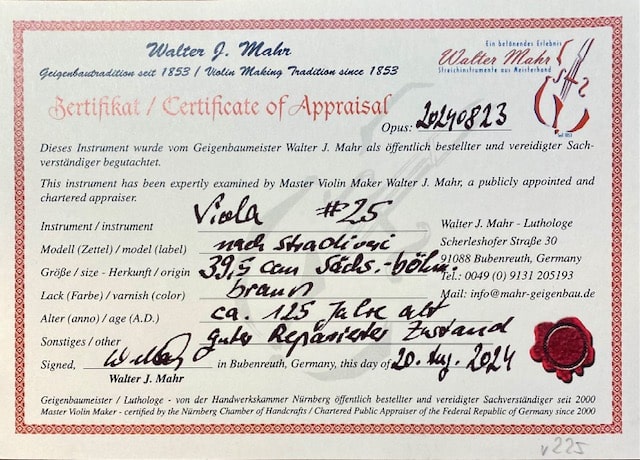 Walter J. Mahr
Geigenbautradition seit 1853 / Violin Making Tradition since 1853
Ein betönendes Erlebnis
Walter Mahr
Streichinstrumente aus Meisterhand
seit 1853
Zertifikat / Certificate of Appraisal
Opus: 20240823
Dieses Instrument wurde vom Geigenbaumeister Walter J. Mahr als öffentlich bestellter und vereidigter Sach-
verständiger begutachtet.
This instrument has been expertly examined by Master Violin Maker Walter J. Mahr, a publicly appointed and
chartered appraiser.
Instrument / instrument Viola #25
Modell (Zettel) / model (label) nach Stradivari
Größe / size - Herkunft / origin 39,5 cm Sächs.-böhm.
Lack (Farbe) / varnish (color) braun
Alter (anno) / age (A.D.) ca. 125 Jahre alt
Sonstiges / other guter Reparierter Zustand
Walter J. Mahr - Luthologe
Scherleshofer Straße 30
91088 Bubenreuth, Germany
Tel.: 0049 (0) 9131 205193
Mail: info@mahr-geigenbau.de
Signed, in Bubenreuth, Germany, this day of 20. Aug. 2024
Walter J. Mahr
Geigenbaumeister / Luthologe - von der Handwerkskammer Nürnberg öffentlich bestellter und vereidigter Sachverständiger seit 2000
Master Violin Maker - certified by the Nürnberg Chamber of Handcrafts / Chartered Public Appraiser of the Federal Republic of Germany since 2000
v225